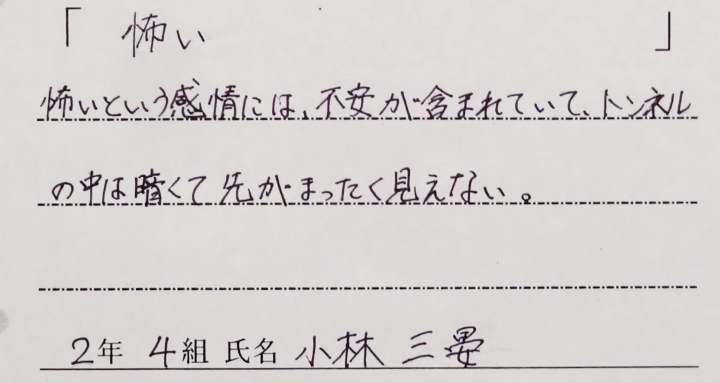 「 怖い 」
怖いという感情には、不安が含まれていて、トンネル
の中は暗くて先がまったく見えない。
2年 4組 氏名 小林 三晏